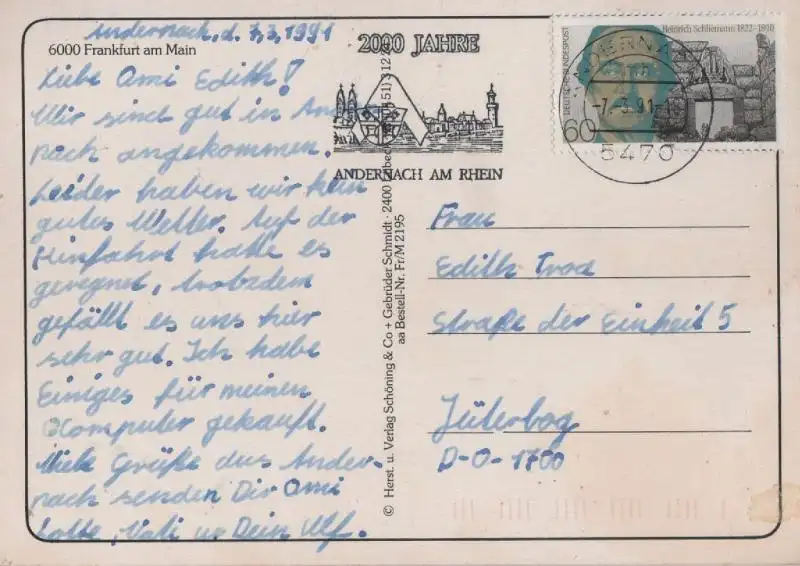 Andernach, d. 7,3,1991
6000 Frankfurt am Main
Liebe Omi Edith!
Wir sind gut in Ander
nach angekommen.
Leider haben wir kein
gutes Wetter. Auf der
Hinfahrt hatte es
geregnet, trotzdem
gefällt es uns hier
sehr gut. Ich habe
Einiges für meinen
Computer gekauft.
Viele Grüße aus Ander-
nach senden Dir Omi
Lotte, Vati u. Dein Ulf.
2000 JAHRE
ANDERNACH AM RHEIN
© Herst. u. Verlag Schöning & Co + Gebrüder Schmidt · 2400 Lübeck
51) 3 12
aa Bestell-Nr. Fr/M 2195
Heinrich Schliemann 1822-1890
DEUTSCHE BUNDESPOST
60
ANDERNA
-7.-3.91-
5470
Frau
Edith
Straße der Einheit 5
Jüterbog
D-O-1700